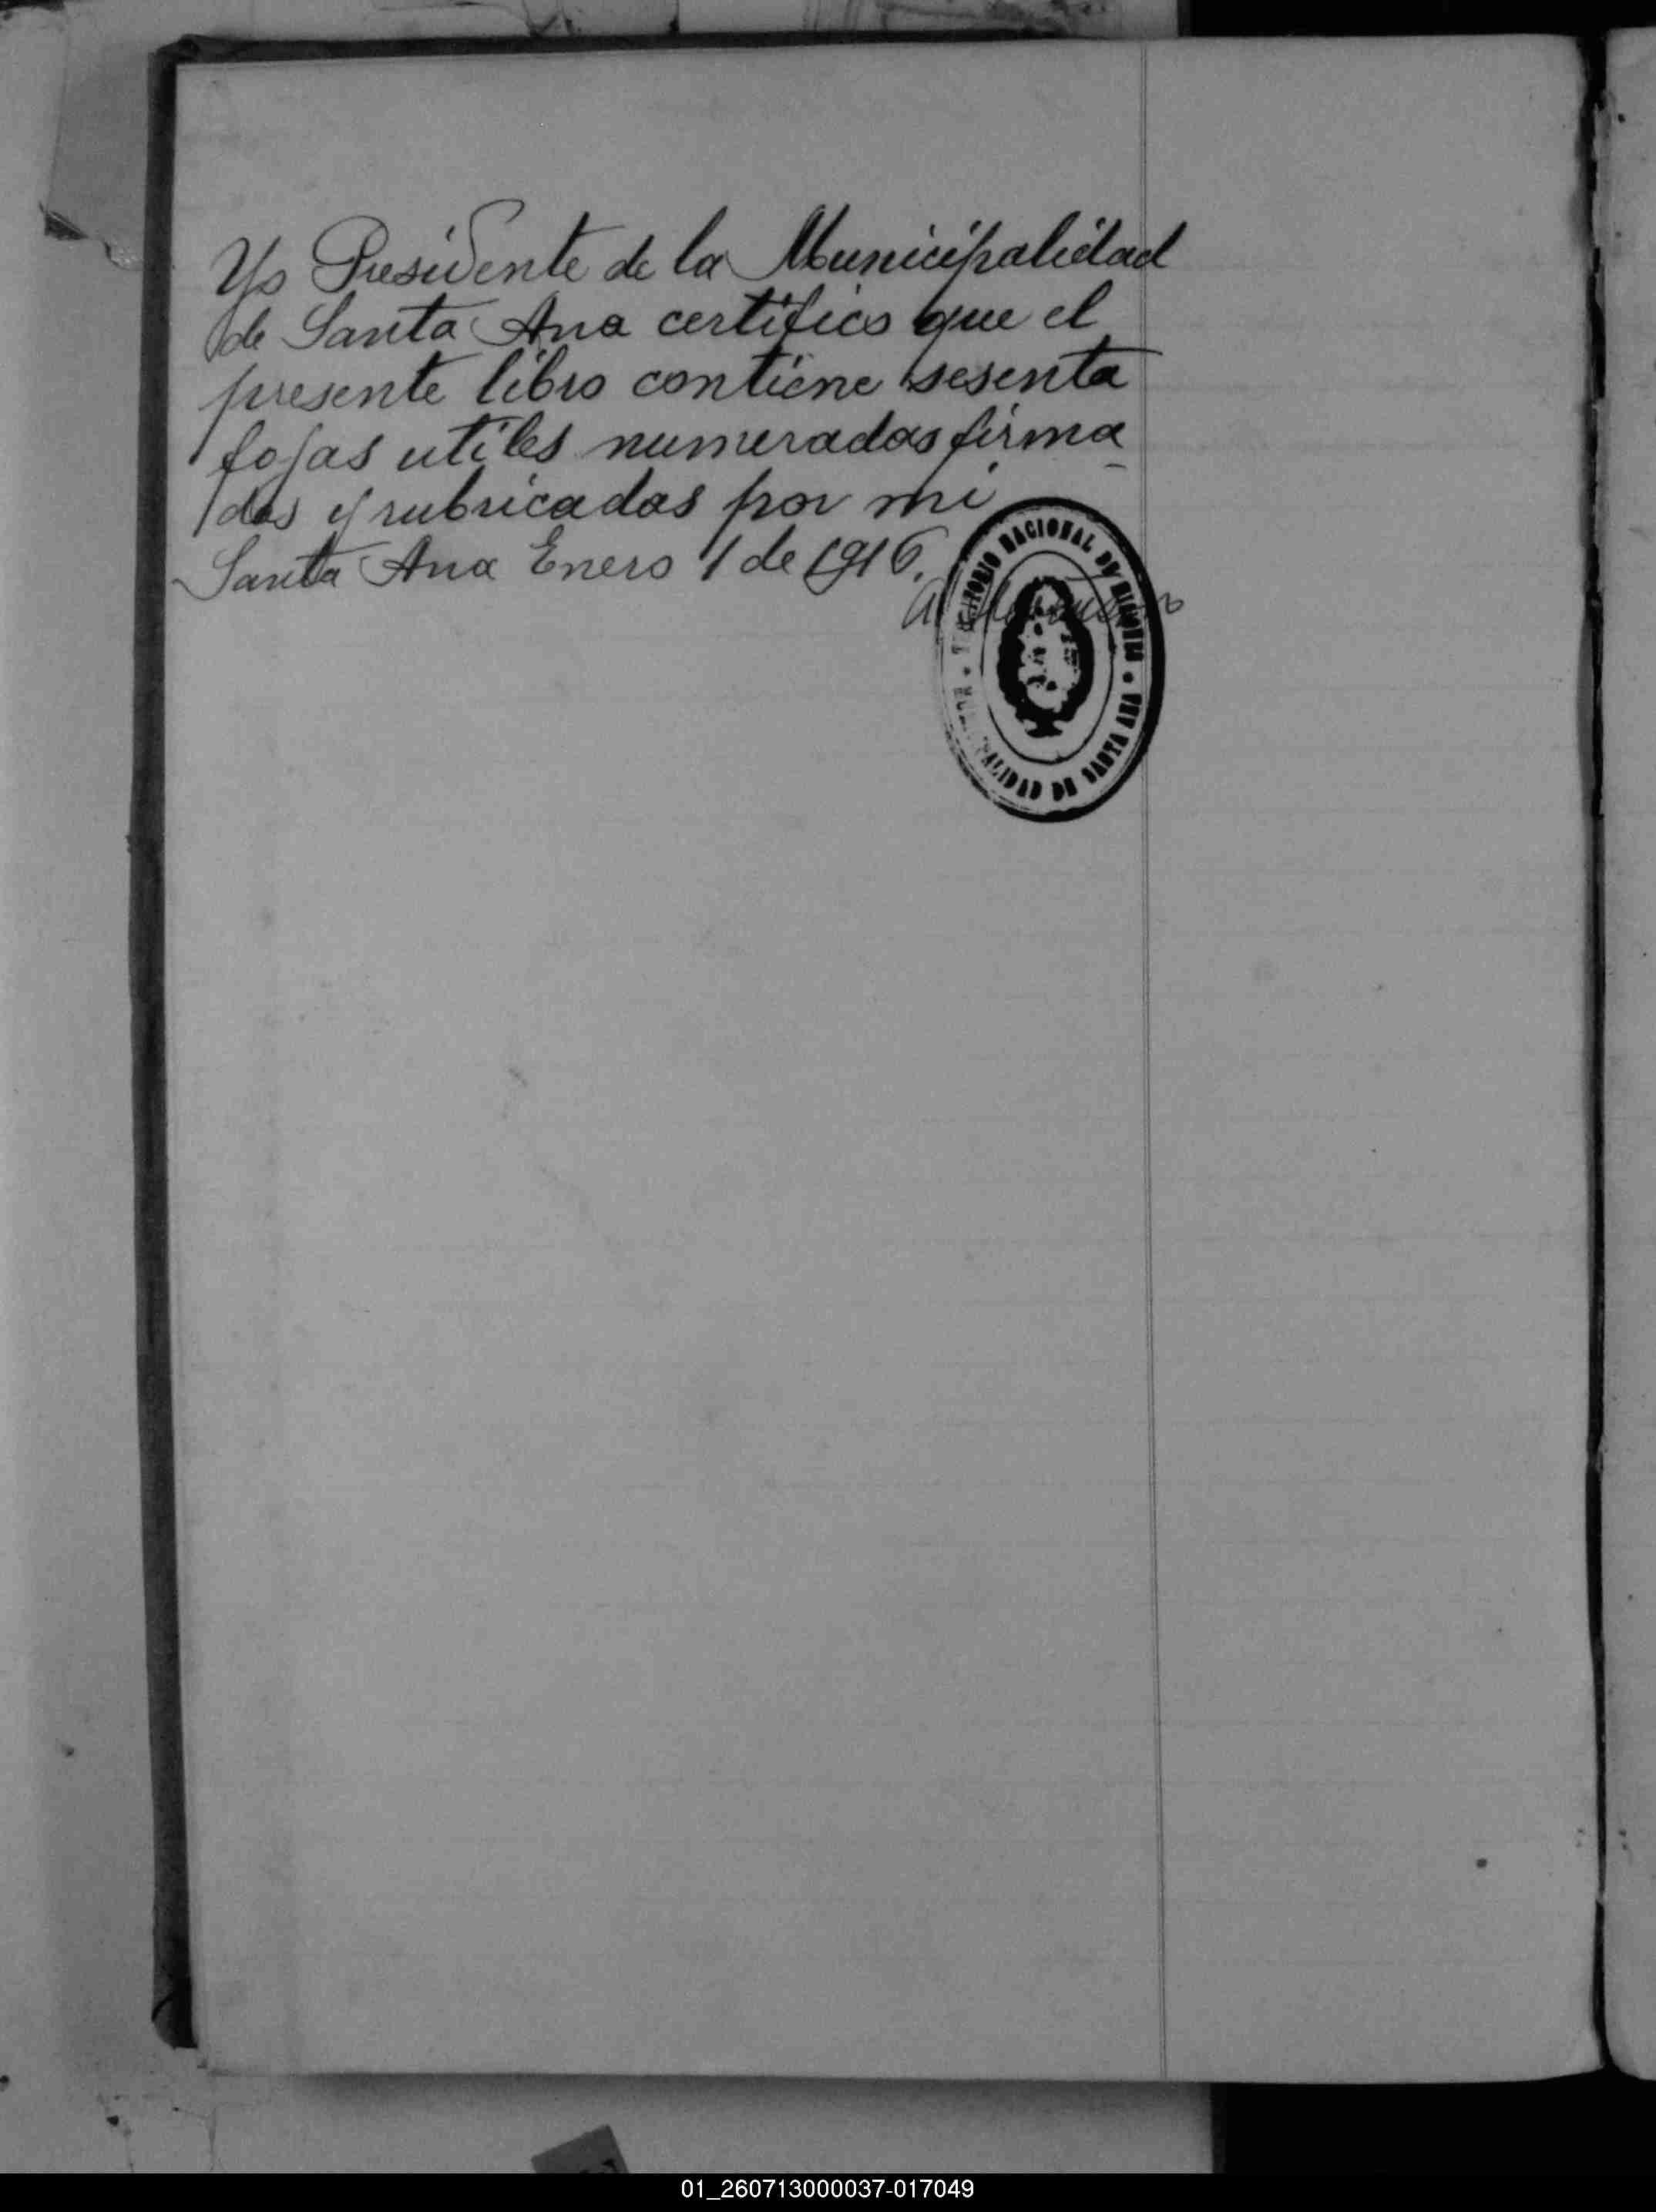 Yo Presidente de la Municipalidad
de Santa Ana certifico que el
presente libro contiene sesenta
fojas utiles numeradas firma
das y rubricadas por mi
Santa Ana Enero 1 de 1916.
TERRITORIO NACIONAL DE MISIONES
MUNICIPALIDAD DE SANTA ANA
01_260713000037-017049